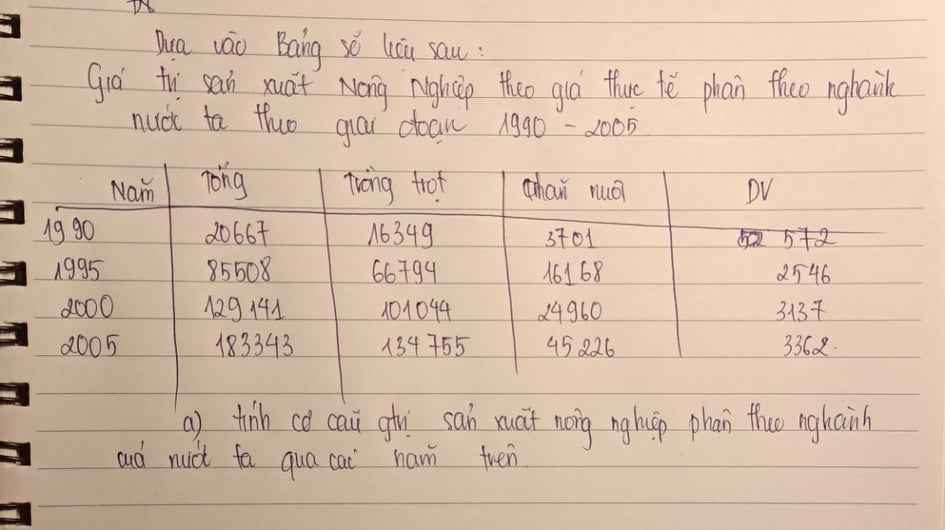 Dựa vào Bảng số liệu sau :
Giá trị sản xuất Nông Nghiệp theo giá thực tế phân theo nghành
nước ta theo giai đoạn 1990 - 2005
Năm Tổng Trồng trọt Chăn nuôi DV
1990 20667 16349 3701 572
1995 85508 66794 16168 2546
2000 129141 101044 24960 3137
2005 183343 134755 45226 3362.
a) tính cơ cấu gtrị sản xuất nông nghiệp phân theo nghành
củả nước ta qua các năm trên.